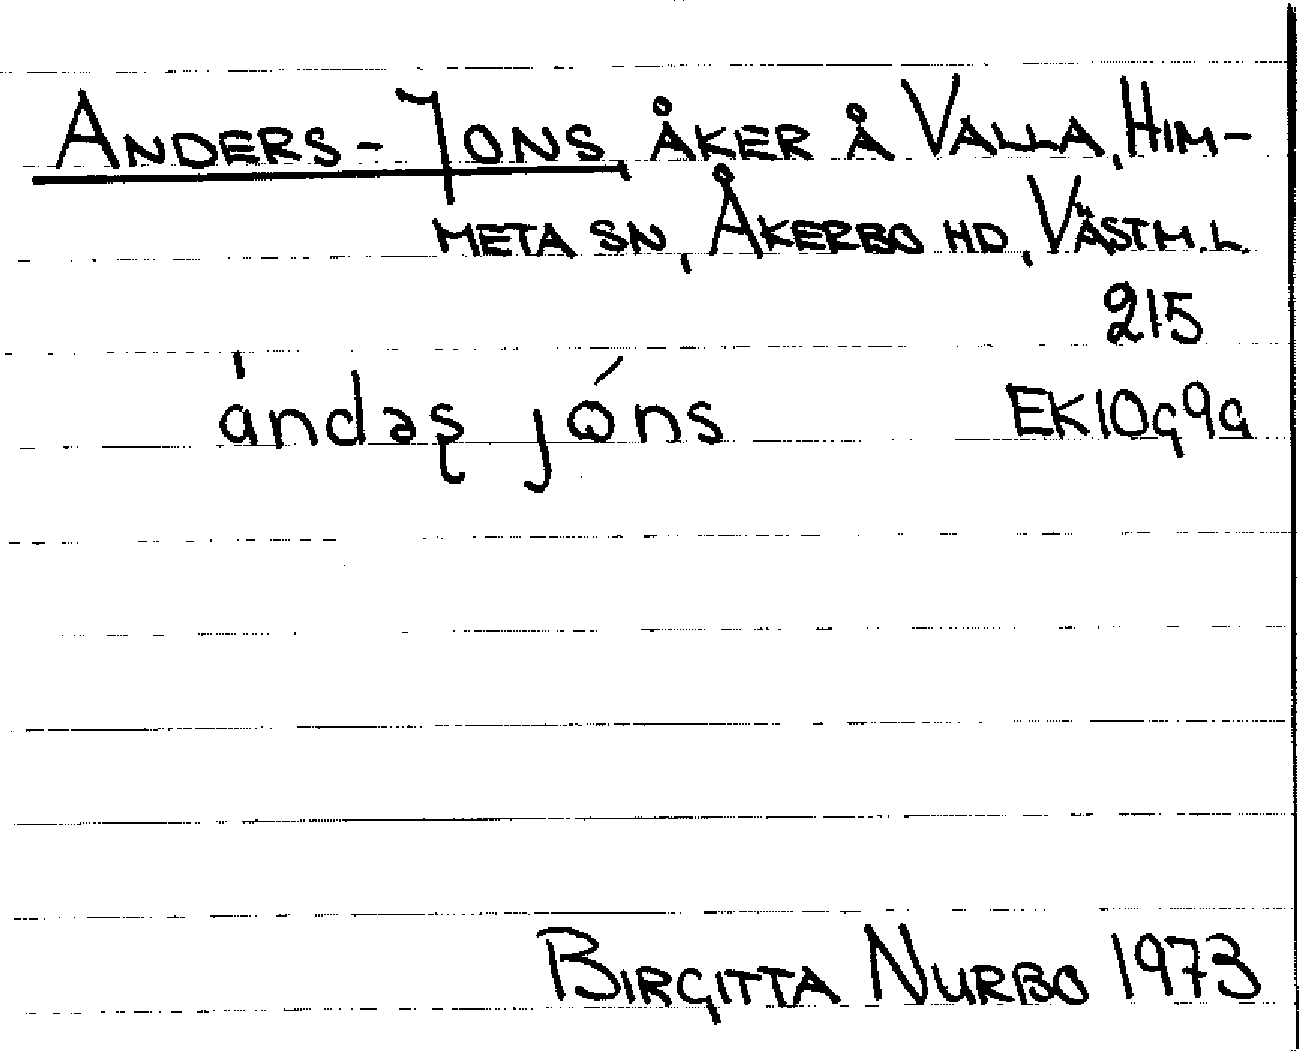 ANDERS-JONS, ÅKER Å VALLA, HIM-
META SN, ÅKERBO HD, VÄSTM.L
215
ándəʂ jóns EK10G9G
BIRGITTA NURBO 1973